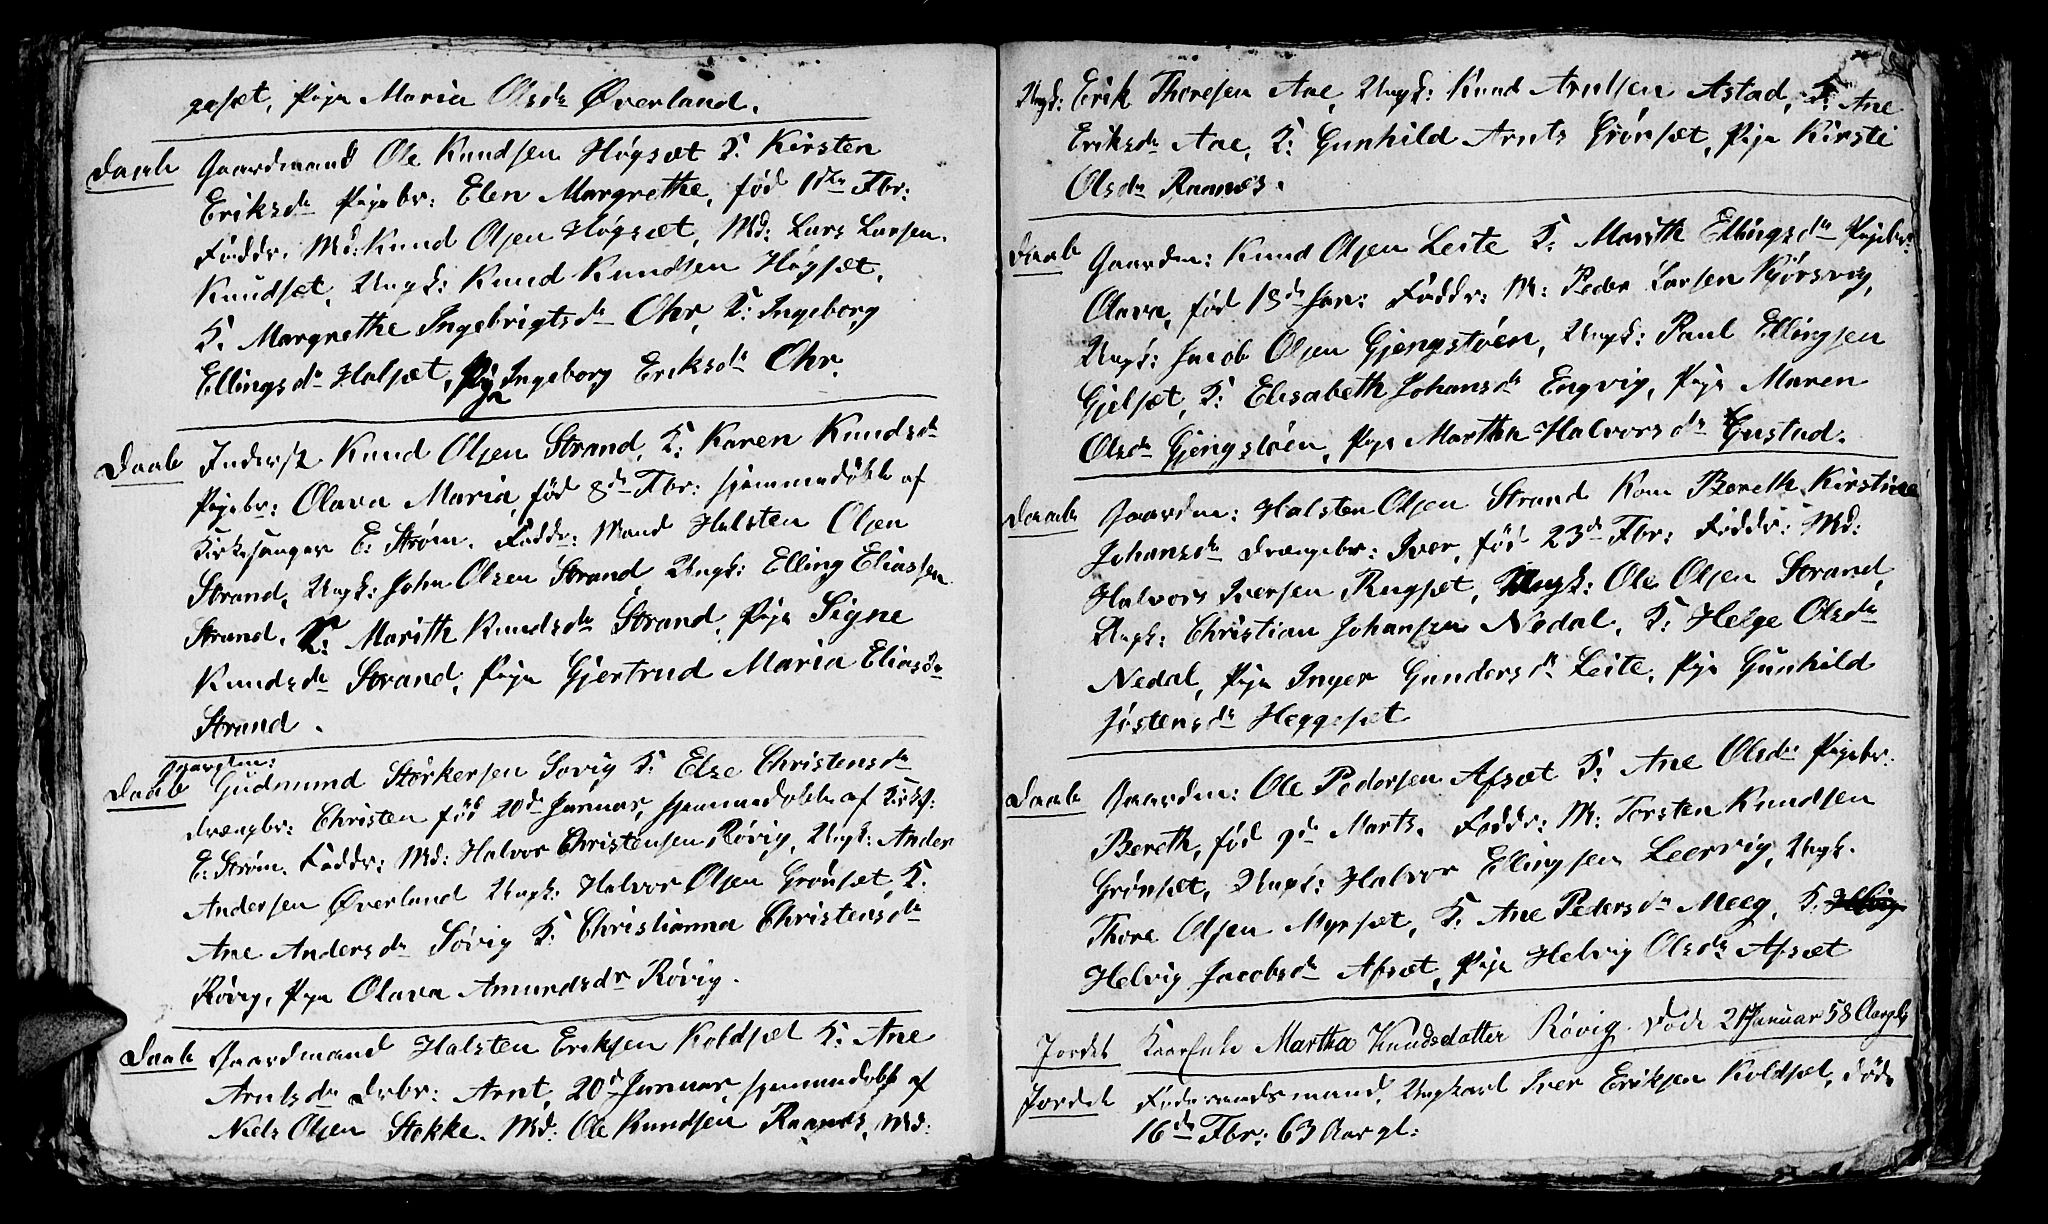 gesæt, Pige Maria Olsdr Øverland.
Daab Gaardmand Ole Knudsen Høgsæt K. Kirsten
Eriksdr Pigebr: Elen Margrethe, fød 1de Fbr:
Faddr. Md: Knud Olsen Høgsæt, Md: Lars Larsen
Knudsæt, Ungk: Knud Knudsen Høgsæt,
K. Margrethe Ingebrigtsdr Ohr, K: Ingeborg
Ellingsdr Halsæt, Pige Ingeborg Eriksdr Ohr.
Daab Inderst Knud Olsen Strand, K: Karen Knudsdr
Pigebr: Olava Maria, fød 8de Fbr: hjemmedøbt af
Kirkesanger E: Strøm. Faddr: Mand Halsten Olsen
Strand, Ungk: John Olsen Strand, Ungk: Elling Eliassen
Strand. K: Marith Knudsdr Strand, Pige Signe
Knudsdr Strand, Pige Gjertrud Maria Eliasdr
Strand.
Gaardm:
Daab Gudmund Størkersen Sovig K. Else Christensdr
Drængbr: Christen fød 20de Januar, hjemmedøbt af Kirks:
E. Strøm. Faddr: Md: Halvor Christensen Røvig, Ungk: Anders
Andersen Øverland Ungk: Halvor Olsen Grønsæt, K.
Ane Andersdr Søvig K. Christianna Christensdr
Røvig, Pige Olava Amundsdr Røvig.
Daab Gaardmand Halsten Eriksen Koldsæt K. Ane
Arntsdr Drbr: Arnt, 20de Januar, hjemmedøbt af
Niels Olsen Stokke. Md: Ole Knudsen Raanes, Md:
Ungk: Erik Thoresen Aae, Ungk: Knud Arntsen Astad, K: Ane
Eriksdr Aae, K: Gunhild Arnts Grønsæt, Pige Kirsti
Olsdr Raanes.
Daab Gaardm: Knud Olsen Leite K: Marith Ellingsdr Pigebr:
Olava, fød 18de Jan: Faddr: M: Peder Larsen Kjørsvig,
Ungk: Jacob Olsen Gjengstøen, Ungk: Paul Ellingsen
Gjelsæt, K: Elisabeth Johansdr Engvig, Pige Maren
Olsdr Gjengstøen, Pige Martha Halvorsdr Gustad.
Daab Gaardm: Halsten Olsen Strand Kone Bereth Kirstine
Johansdr Drængebr: Iver, fød 23de Fbr: Faddr: Md:
Halvor Iversen Rugsæt, Ungk: Ole Olsen Strand,
Ungk: Christian Johansen Nedal, K: Helge Olsdr
Nedal, Pige Inger Gundersdr Leite, Pige Gunhild
Jostensdr Heggesæt
Daab Gaardm: Ole Pedersen Afsæt K: Ane Olsdr Pigebr:
Bereth, fød 9de Marts. Faddr: M: Torsten Knudsen
Grønsæt, Ungk: Halvor Ellingsen Leervig, Ungk.
Thore Olsen Myrsæt, K: Ane Pedersdr Meeg, K:
Helvig Jacobsdr Afsæt, Pige Helvig Olsdr Afsæt
Jordet Kaarenke Martha Knudsdatter Røvig. Døde 2 Januar 58 Aargl
Jordet Føderaadsmand, Ungkarl Iver Eriksen Koldsæt, Døde
16de Fbr: 63 Aar gl: